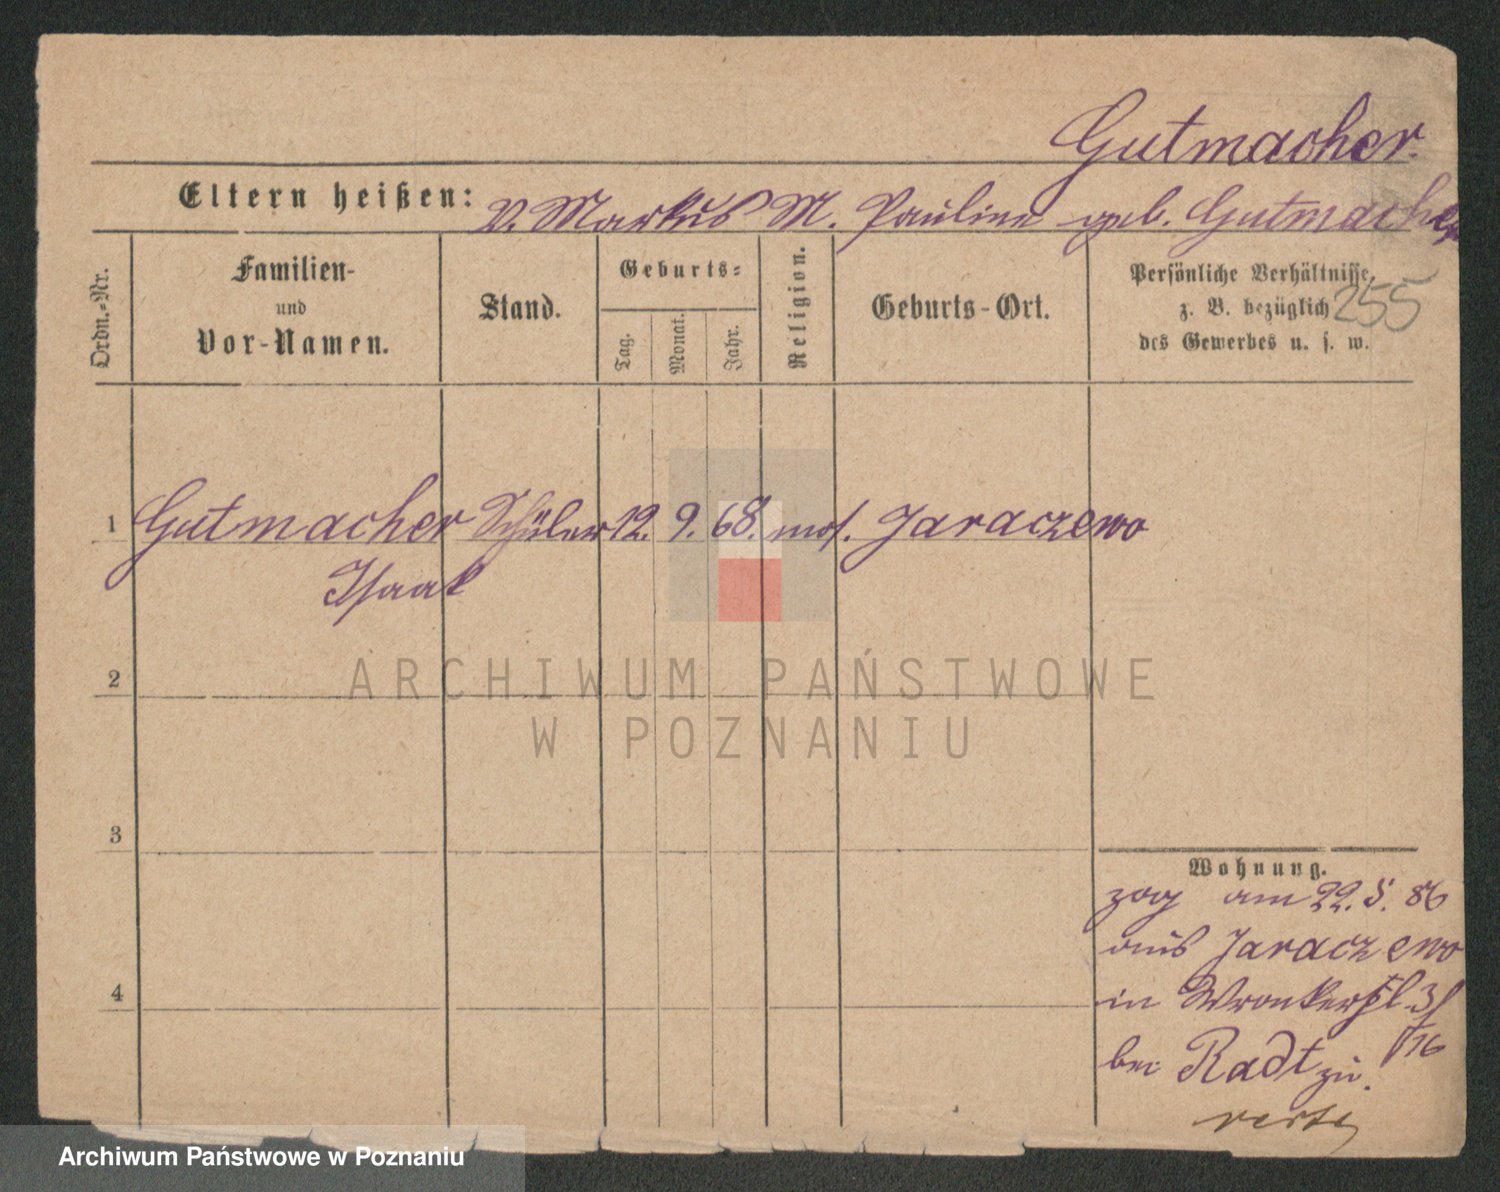 Gutmacher.
Eltern heißen: V. Markus M. Pauline geb. Gutmacher
Ordn.-Nr.
Familien-
und
Vor-Namen.
Stand.
Geburts-
Tag.
Monat.
Jahr.
Religion.
Geburts-Ort.
Persönliche Verhältnisse,
z. B. bezüglich
des Gewerbes u. s. w.
255
1 Gutmacher Schüler 12. 9. 68. mos. Jaraczewo
Isaak
2
3
4
Wohnung.
zog am 22. 5. 86
aus Jaraczewo
in Wronkerstr. 3/
/16
bei Radt zu.
verte
ARCHIWUM PAŃSTWOWE
W POZNANIU
Archiwum Państwowe w Poznaniu